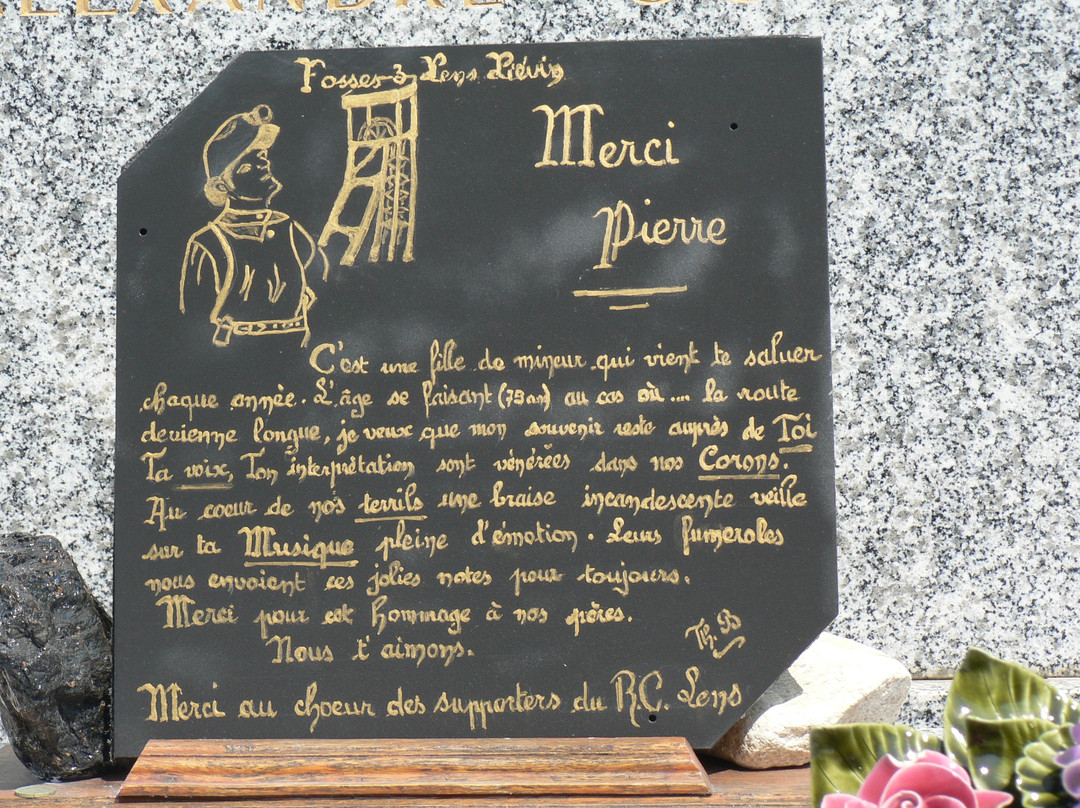 ALEXANDRE
Fosses 3 Lens Liévin
Merci
Pierre
C'est une fille de mineur qui vient te saluer
chaque année. L'âge se faisant (75 an) au cas où .... la route
devienne longue, je veux que mon souvenir reste auprès de Toi
Ta voix, Ton interprétation sont vénérées dans nos Corons.
Au coeur de nos terrils une braise incandescente veille
sur ta Musique pleine d'émotion. Leurs fumeroles
nous envoient ces jolies notes pour toujours.
Merci pour cet hommage à nos pères.
Nous t'aimons.
Th. B
Merci au choeur des supporters du R.C. Lens